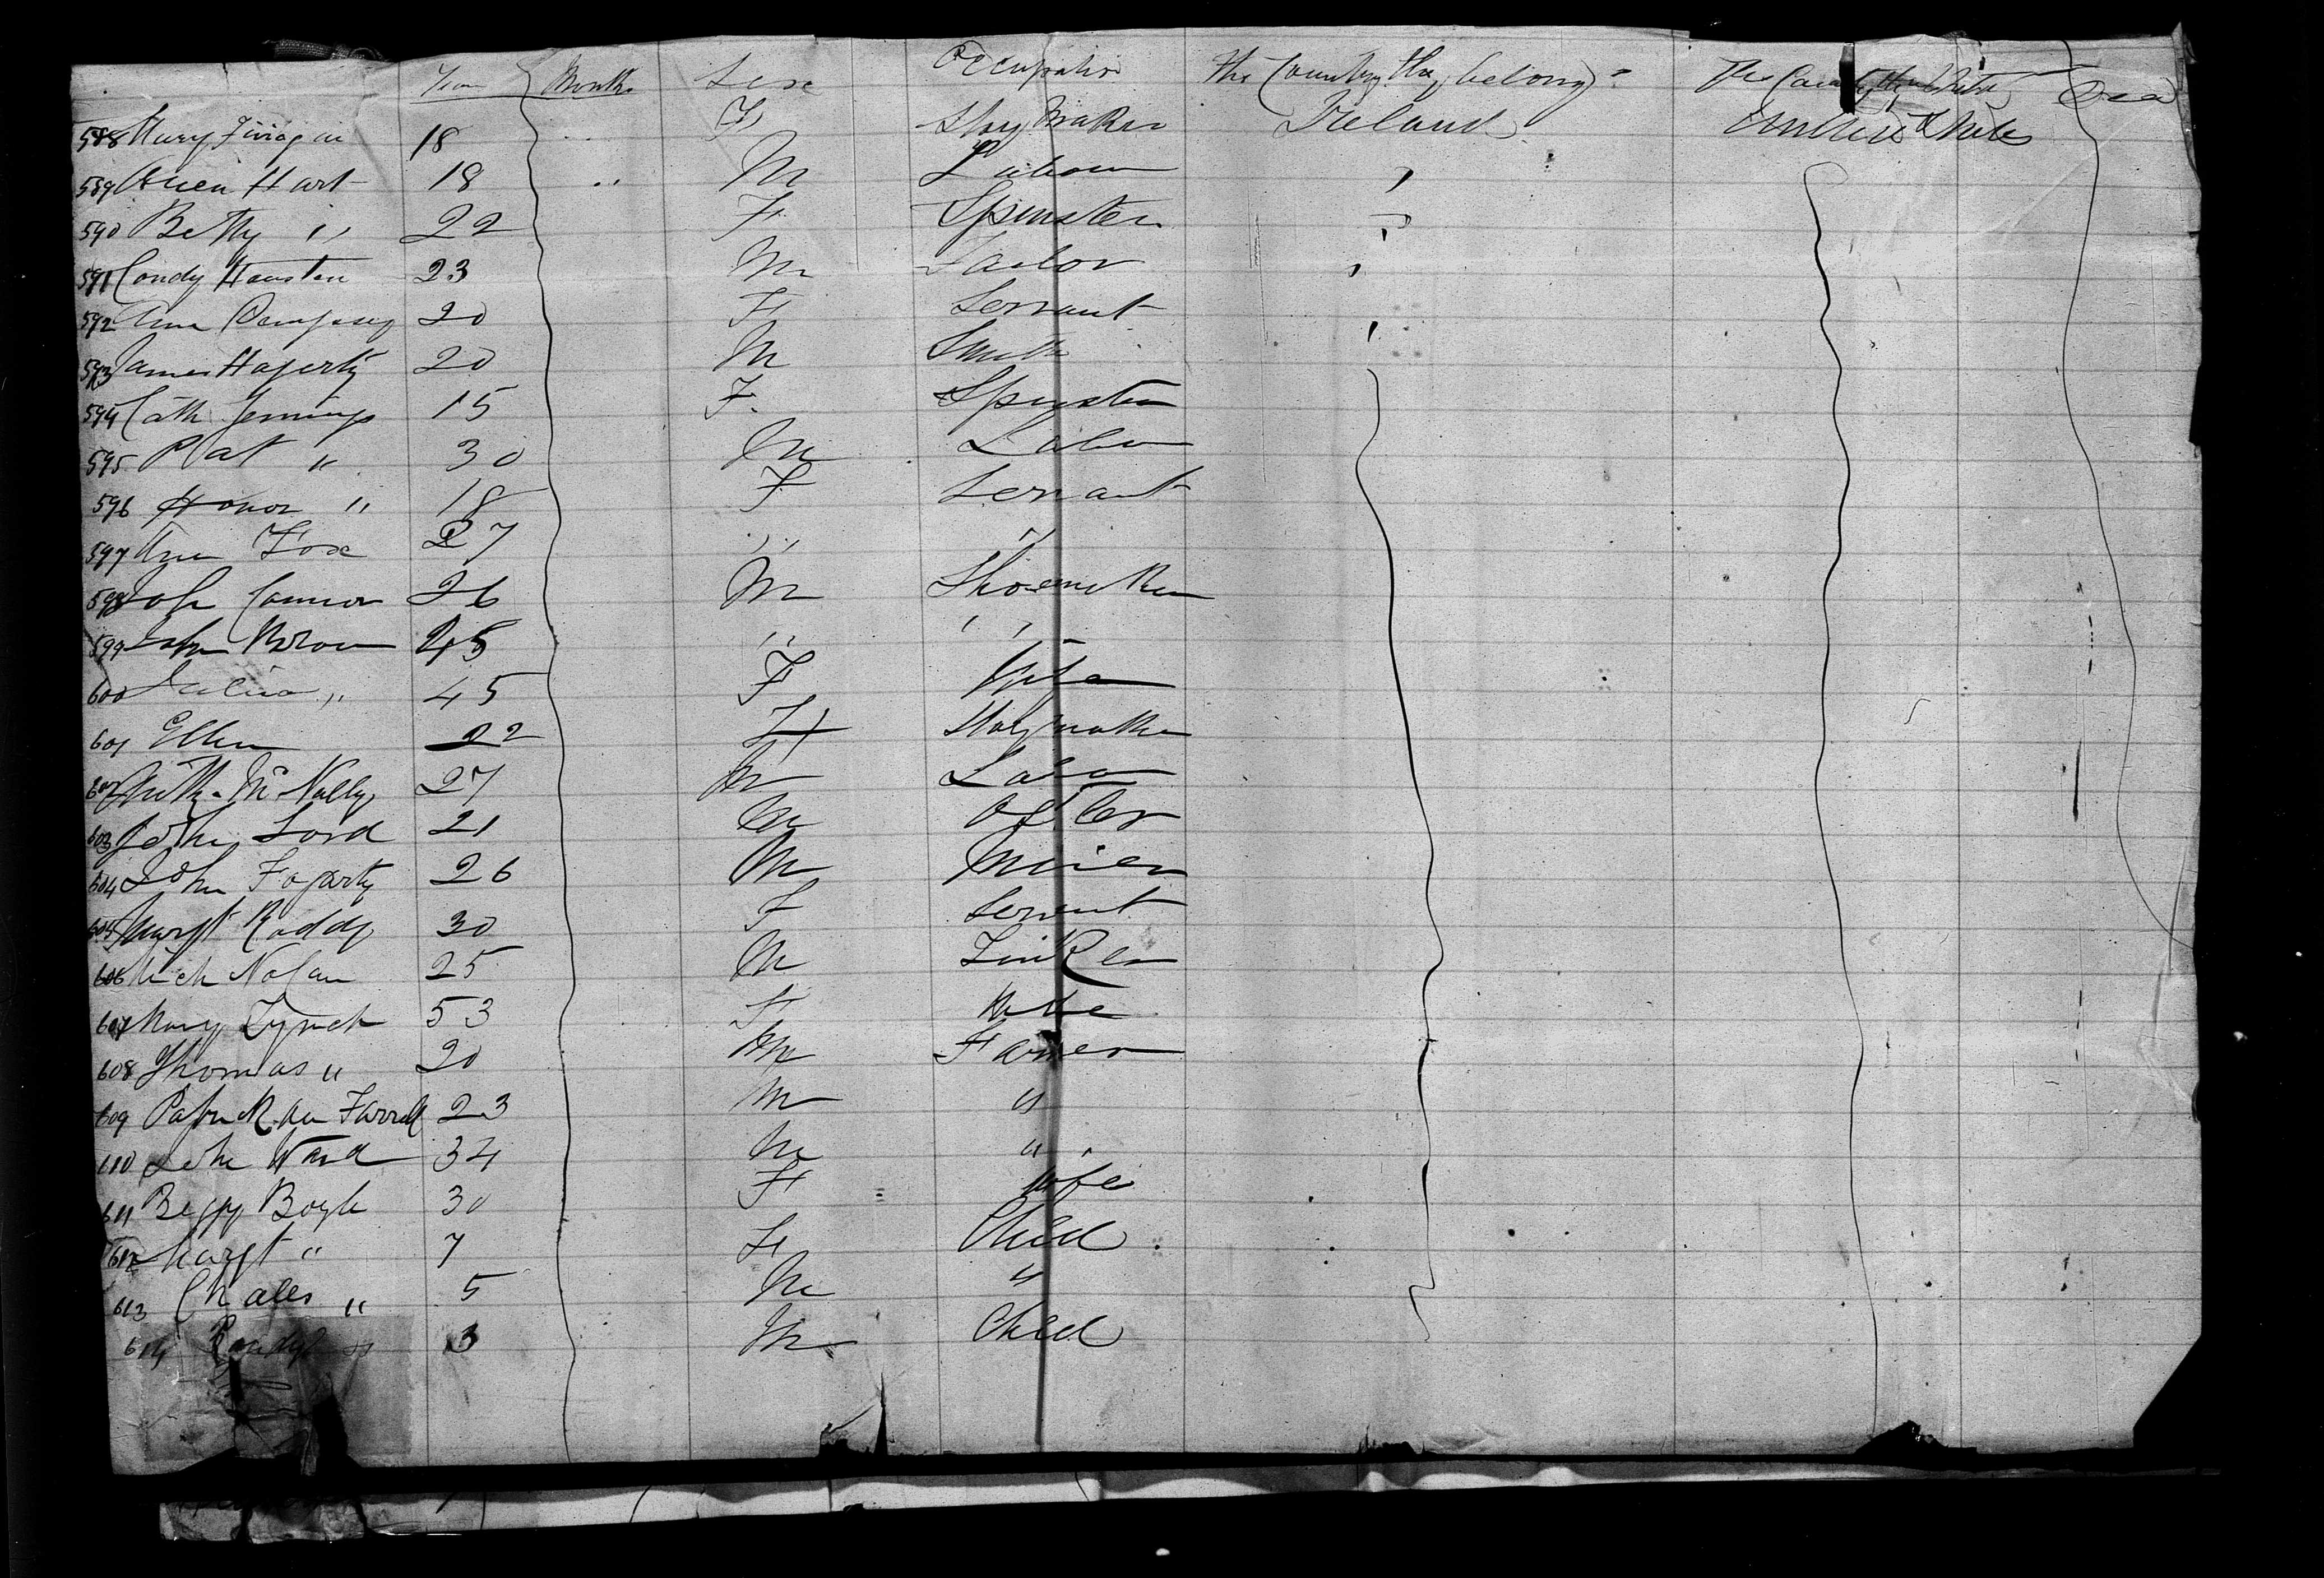 Years Months Sex Occupation The Country they belong The Country they
588 Mary Finigan 18 F Stay Maker Ireland United States
589 Owen Hart 18 " M Labour
590 Betty " 22 F Spinster
591 Condy Houston 23 M Tailor
592 Ann Dempsey 20 F Servant
593 James Hagerty 20 M Smith
594 Cath Jennings 15 F. Spinster
595 Pat " 30 M Labor
596 Honor " 18 F Servant
597 Ann Fox 27 " "
598 John Connor 26 M Shoemaker
599 John Brown 45 " "
600 Julia " 45 F Wife
601 Ellen 22 F Staymaker
602 McNally 27 M Labor
603 John Lord 21 M Ostler
604 John Fogarty 26 M Miner
605 Margt Roddy 30 F Servant
606 Mich Nolan 25 M Tinker
607 Mary Lynch 53 F
608 Thomas " 20 M Farmer
609 Patrick Farrell 23 M "
610 John Ward 34 M "
611 Peggy Boyle 30 F wife
612 Margt " 7 F Child
613 Chales " 5 M "
614 " 3 M Child